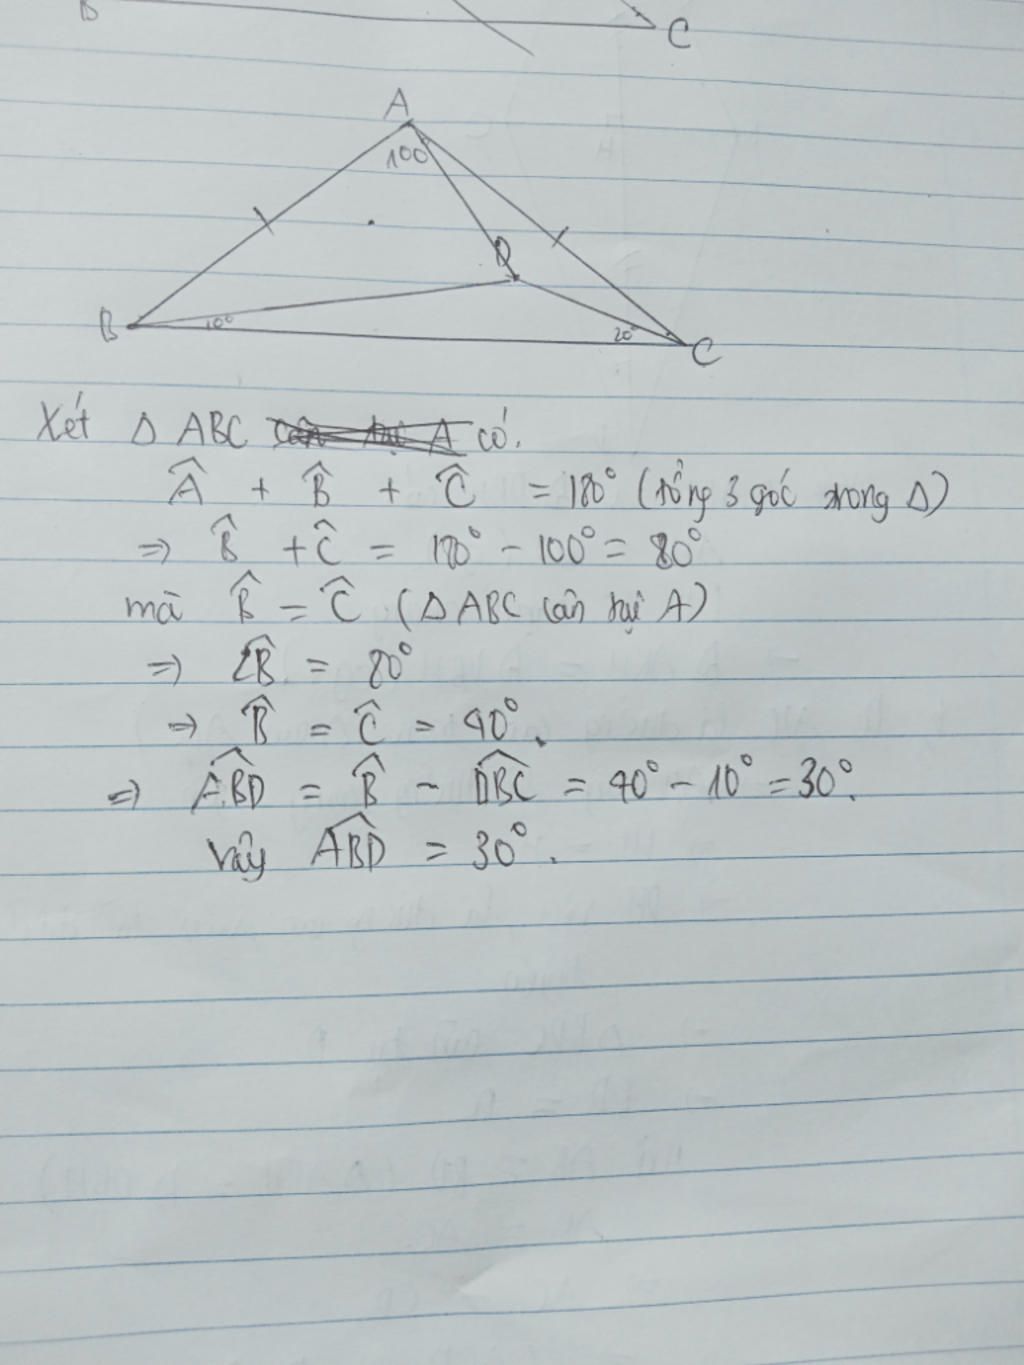 B
C
A
100°
D
B
10°
20°
C
Xét Δ ABC có.
Â + B̂ + Ĉ = 180° (tổng 3 góc trong Δ)
⇒ B̂ + Ĉ = 180° - 100° = 80°
mà B̂ = Ĉ (Δ ABC cân tại A)
⇒ 2B̂ = 80°
⇒ B̂ = Ĉ = 40°.
⇒ \widehat{ABD} = B̂ - \widehat{DBC} = 40° - 10° = 30°.
Vậy \widehat{ABD} = 30°.